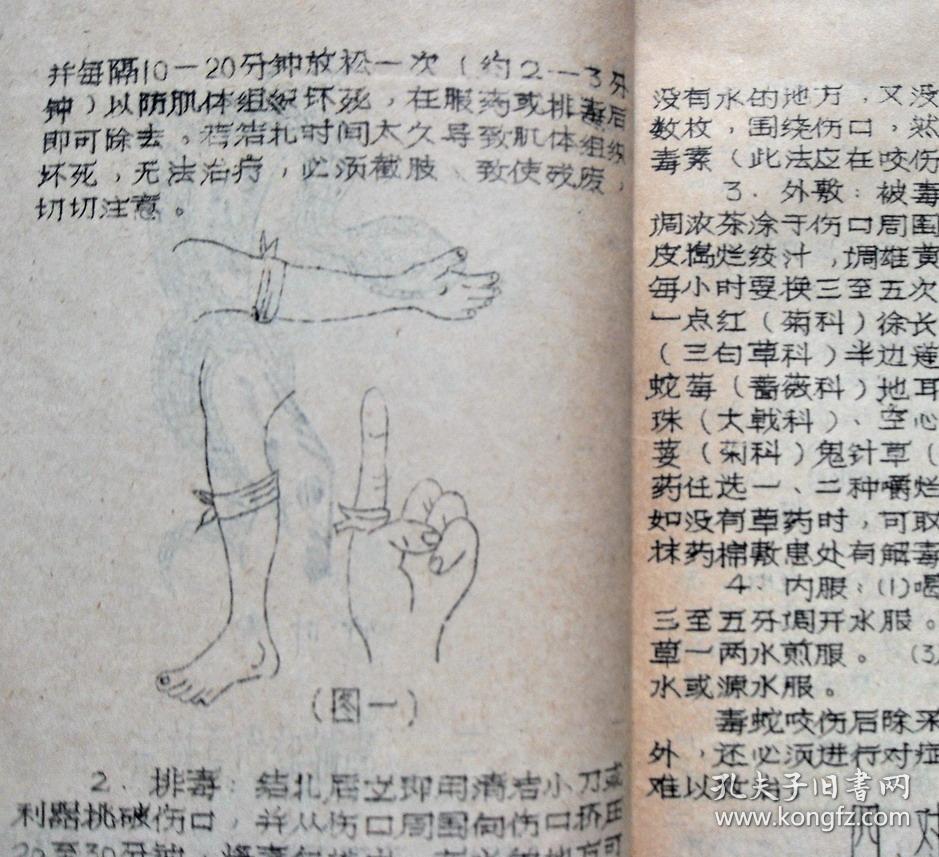 并每隔10—20分钟放松一次（约2—3分
钟）以防肌体组织坏死，在服药或排毒后
即可除去。若结扎时间太久导致肌体组织
坏死，无法治疗，必须截肢、致使残废，
切切注意。
（图一）
2．排毒：结扎后立即用清洁小刀或
利器挑破伤口，并从伤口周围向伤口挤压
20至30分钟，将毒
没有水的地方，又没
数枚，围绕伤口，然
毒素（此法应在咬伤
3．外敷：被毒
调浓茶涂于伤口周围
皮捣烂绞汁，调雄黄
每小时要换三至五次
一点红（菊科）徐长
（三白草科）半边莲
蛇莓（蔷薇科）地耳
珠（大戟科）、空心
蒌（菊科）鬼针草（
药任选一、二种嚼烂
如没有草药时，可取
抹药棉敷患处有解毒
4．内服：(1)喝
三至五分调开水服。
草一两水煎服。(3)
水或源水服。
毒蛇咬伤后除采
外，还必须进行对症
难以救治
四、对
孔夫子旧书网
kongfz.com